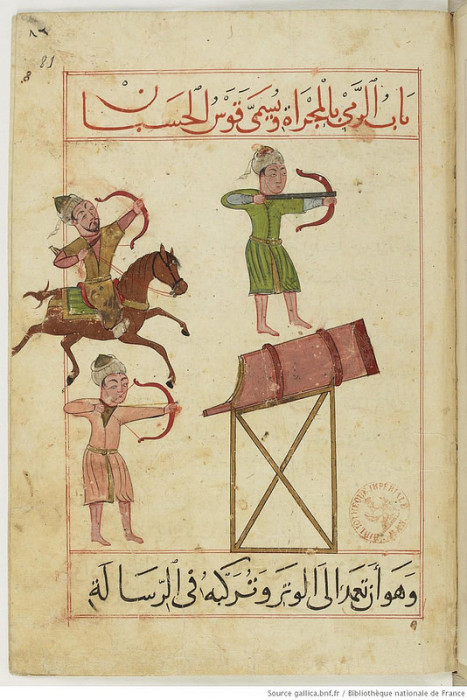 ٨٦
81
8
باب الرمي بالمجراة ويسمى قوس الحسبان
وهو أن تعمد الى الوتر وتركبه في الرسالة
BIBLIOTHEQUE IMPERIALE
Source gallica.bnf.fr / Bibliothèque nationale de France